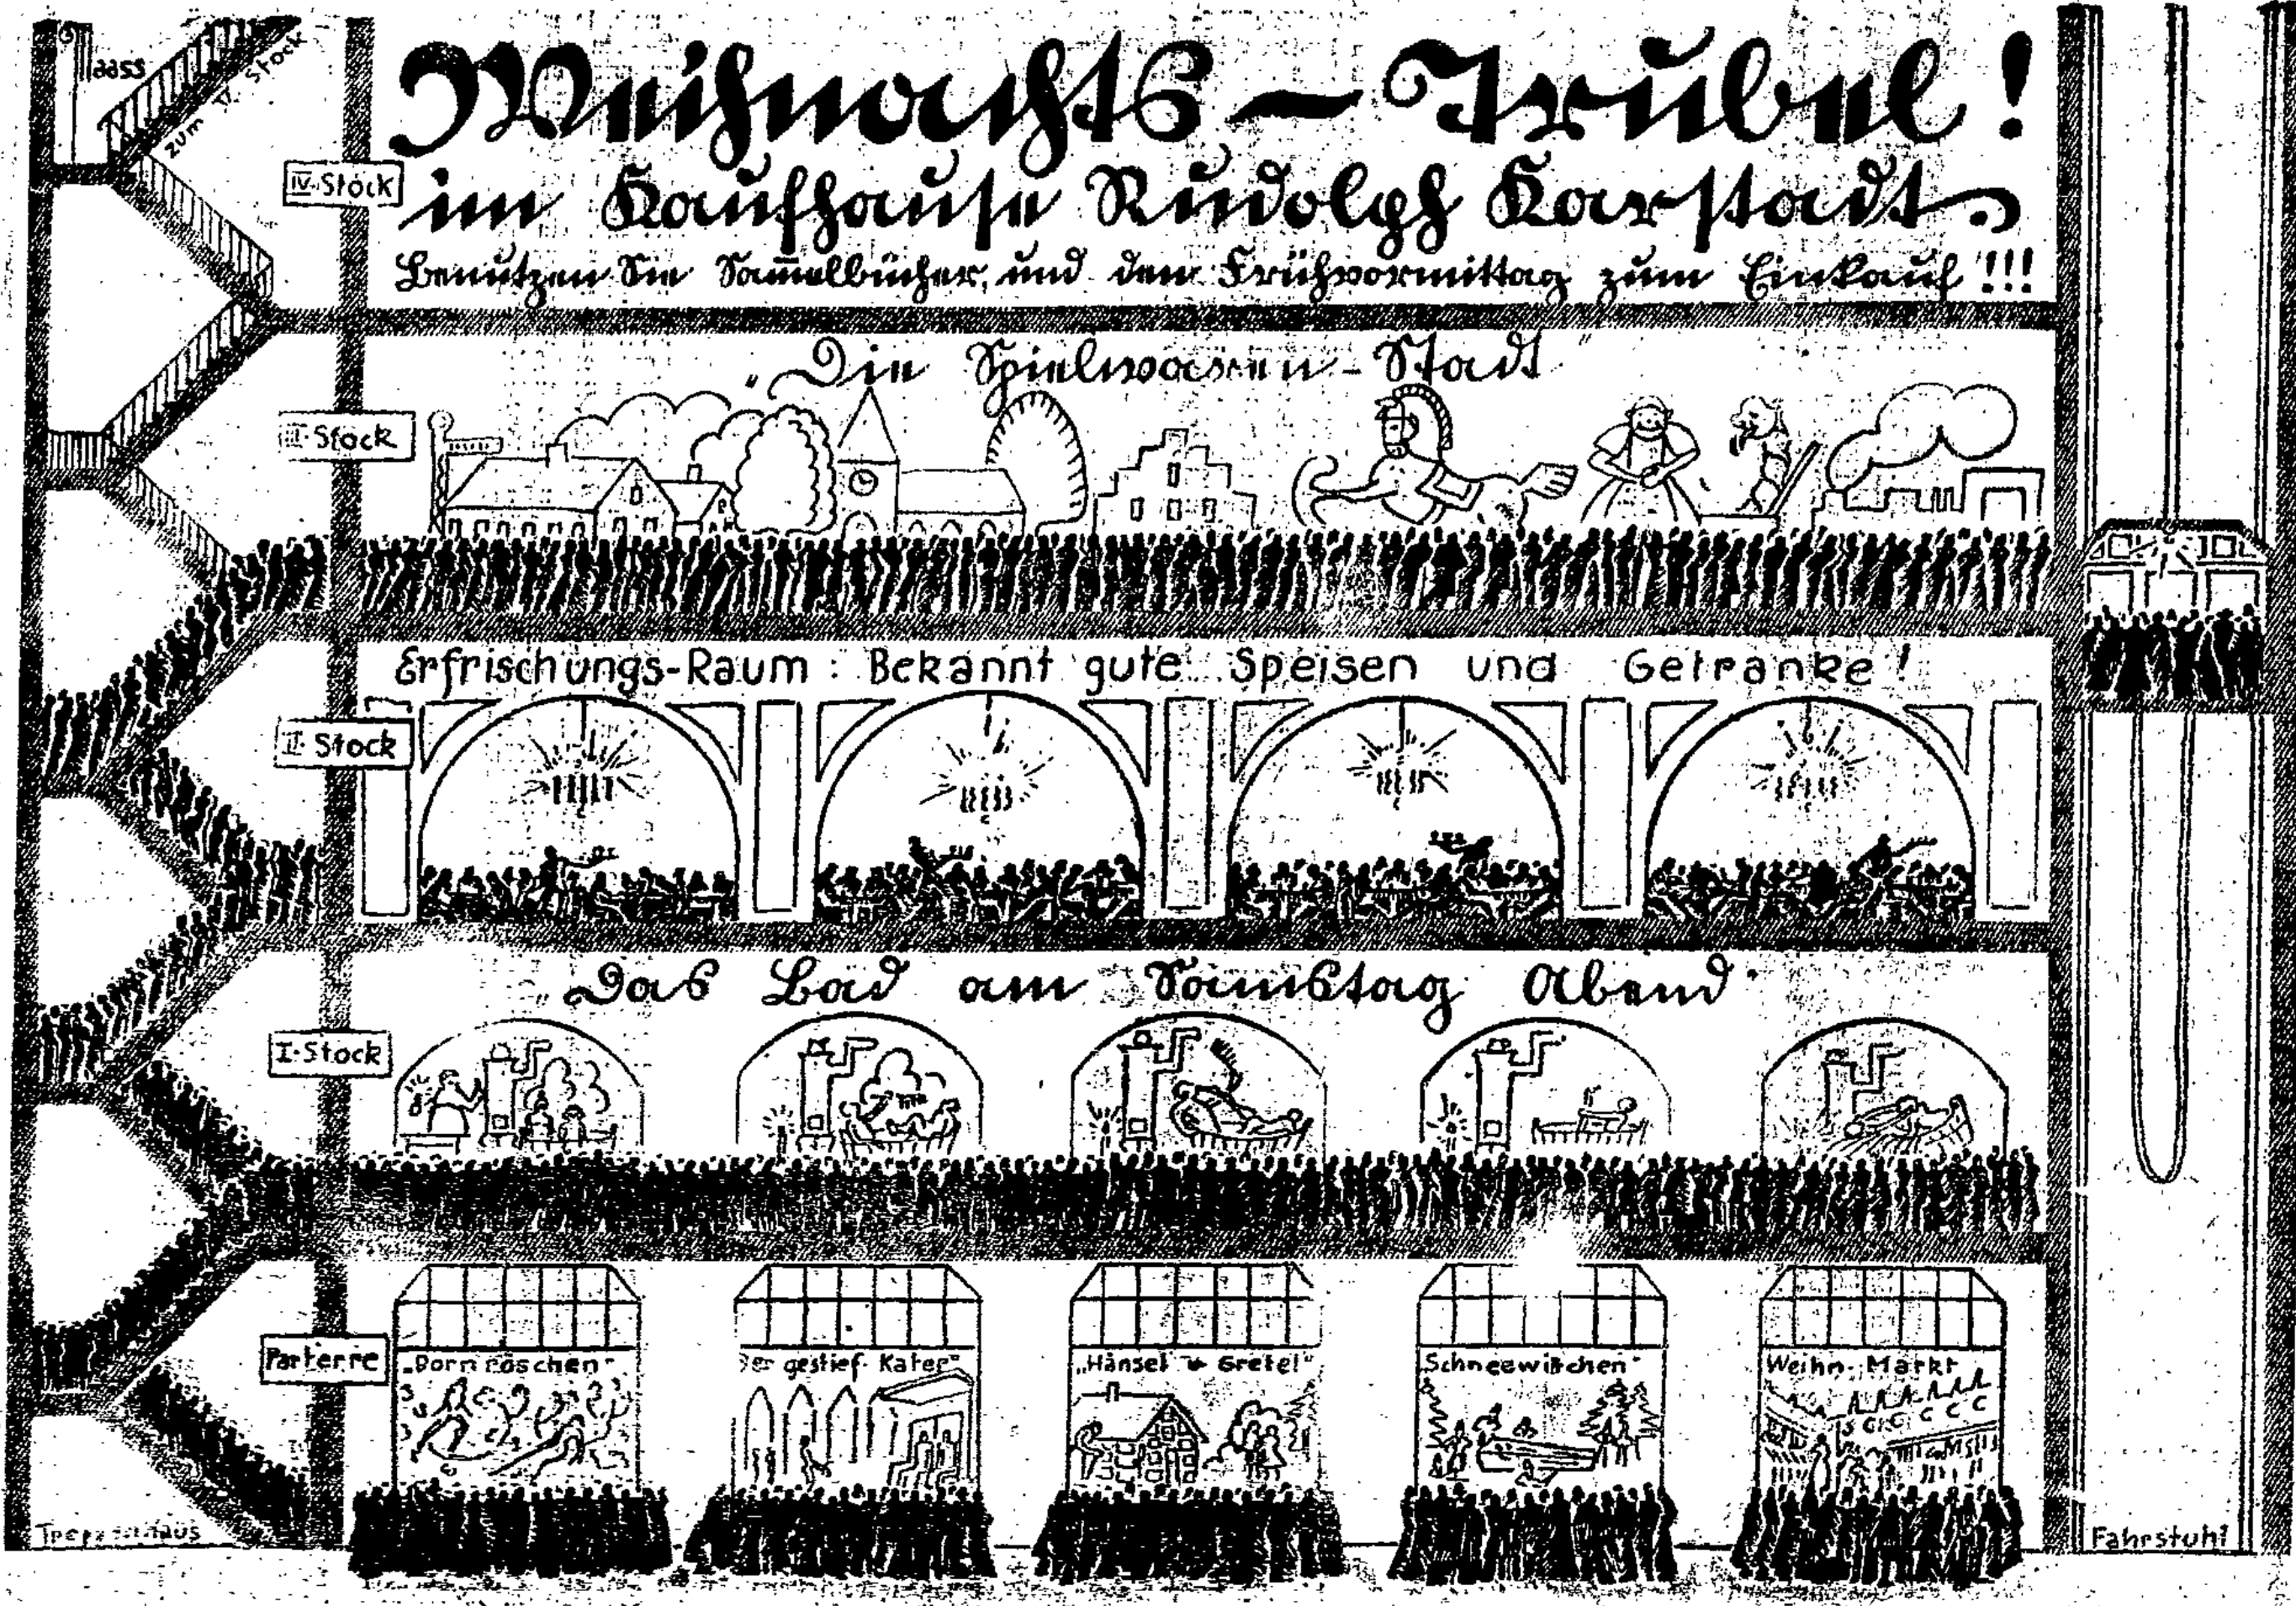 Maass
zum V. Stock
Weihnachts-Trubel!
IV. Stock
im Kaufhause Rudolph Karstadt.
Benutzen Sie Sam̅elbücher, und den Frühvormittag zum Einkauf!!!
„Die Spielwaren-Stadt"
III. Stock
Erfrischungs-Raum: Bekannt gute Speisen und Getränke!
II. Stock
„Das Bad am Samstag Abend"
I. Stock
Parterre
„Dornröschen"
Der gestief. Kater"
„Hänsel u Gretel"
Schneewittchen"
Weihn. Markt
Treppenhaus
Fahrstuhl